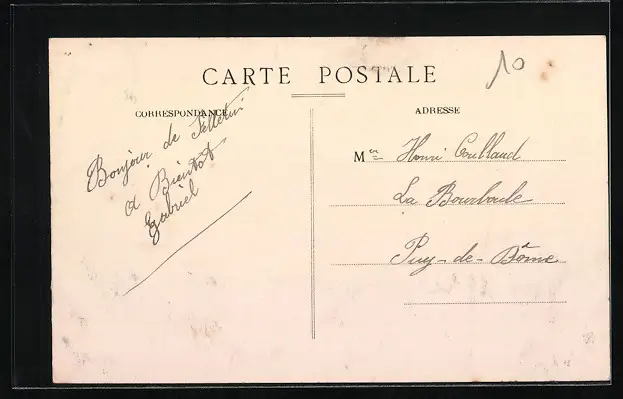 CARTE POSTALE
10
CORRESPONDANCE
Bonjour de Felletin
a Bientot
Gabriel
ADRESSE
Mer Henri Coulland
La Bourboule
Puy-de-Dôme